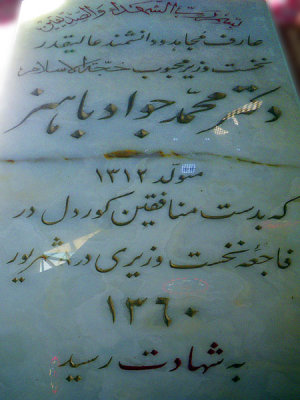 بسم رب الشهداء و الصدیقین
عارف مجاهد و دانشمند عالیقدر
نخست وزیر محبوب حجة الاسلام
دکتر محمد جواد باهنر
متولد ۱۳۱۲
که بدست منافقین کوردل در
فاجعه نخست وزیری در ۸ شهریور
۱۳۶۰
به شهادت رسید